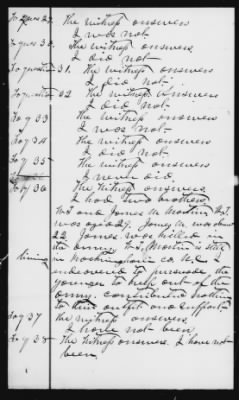 To ques 29. The witness answers
I was not
To ques 30. The witness answers
I did not
To question 31. The witness answers
I did not
To question 32 The witness answers
I did not
To q 33 The witness answers
I was not
To q 34 The witness answers
I did not
To q 35 The witness answers
I never did
To q 36 The witness answers
I had two brothers
W.S. and James A. Martin W.S.
was aged 29. James A. was about
22 James was killed in
the army. W.S. Martin is still
living in Rockingham co. N.C. I
endeavored to pursuade the
younger to keep out of the
army. contributed nothing
to their outfit and support
To q 37 the witness answers
I have not been
To q 38 The witness answers. I have not
been